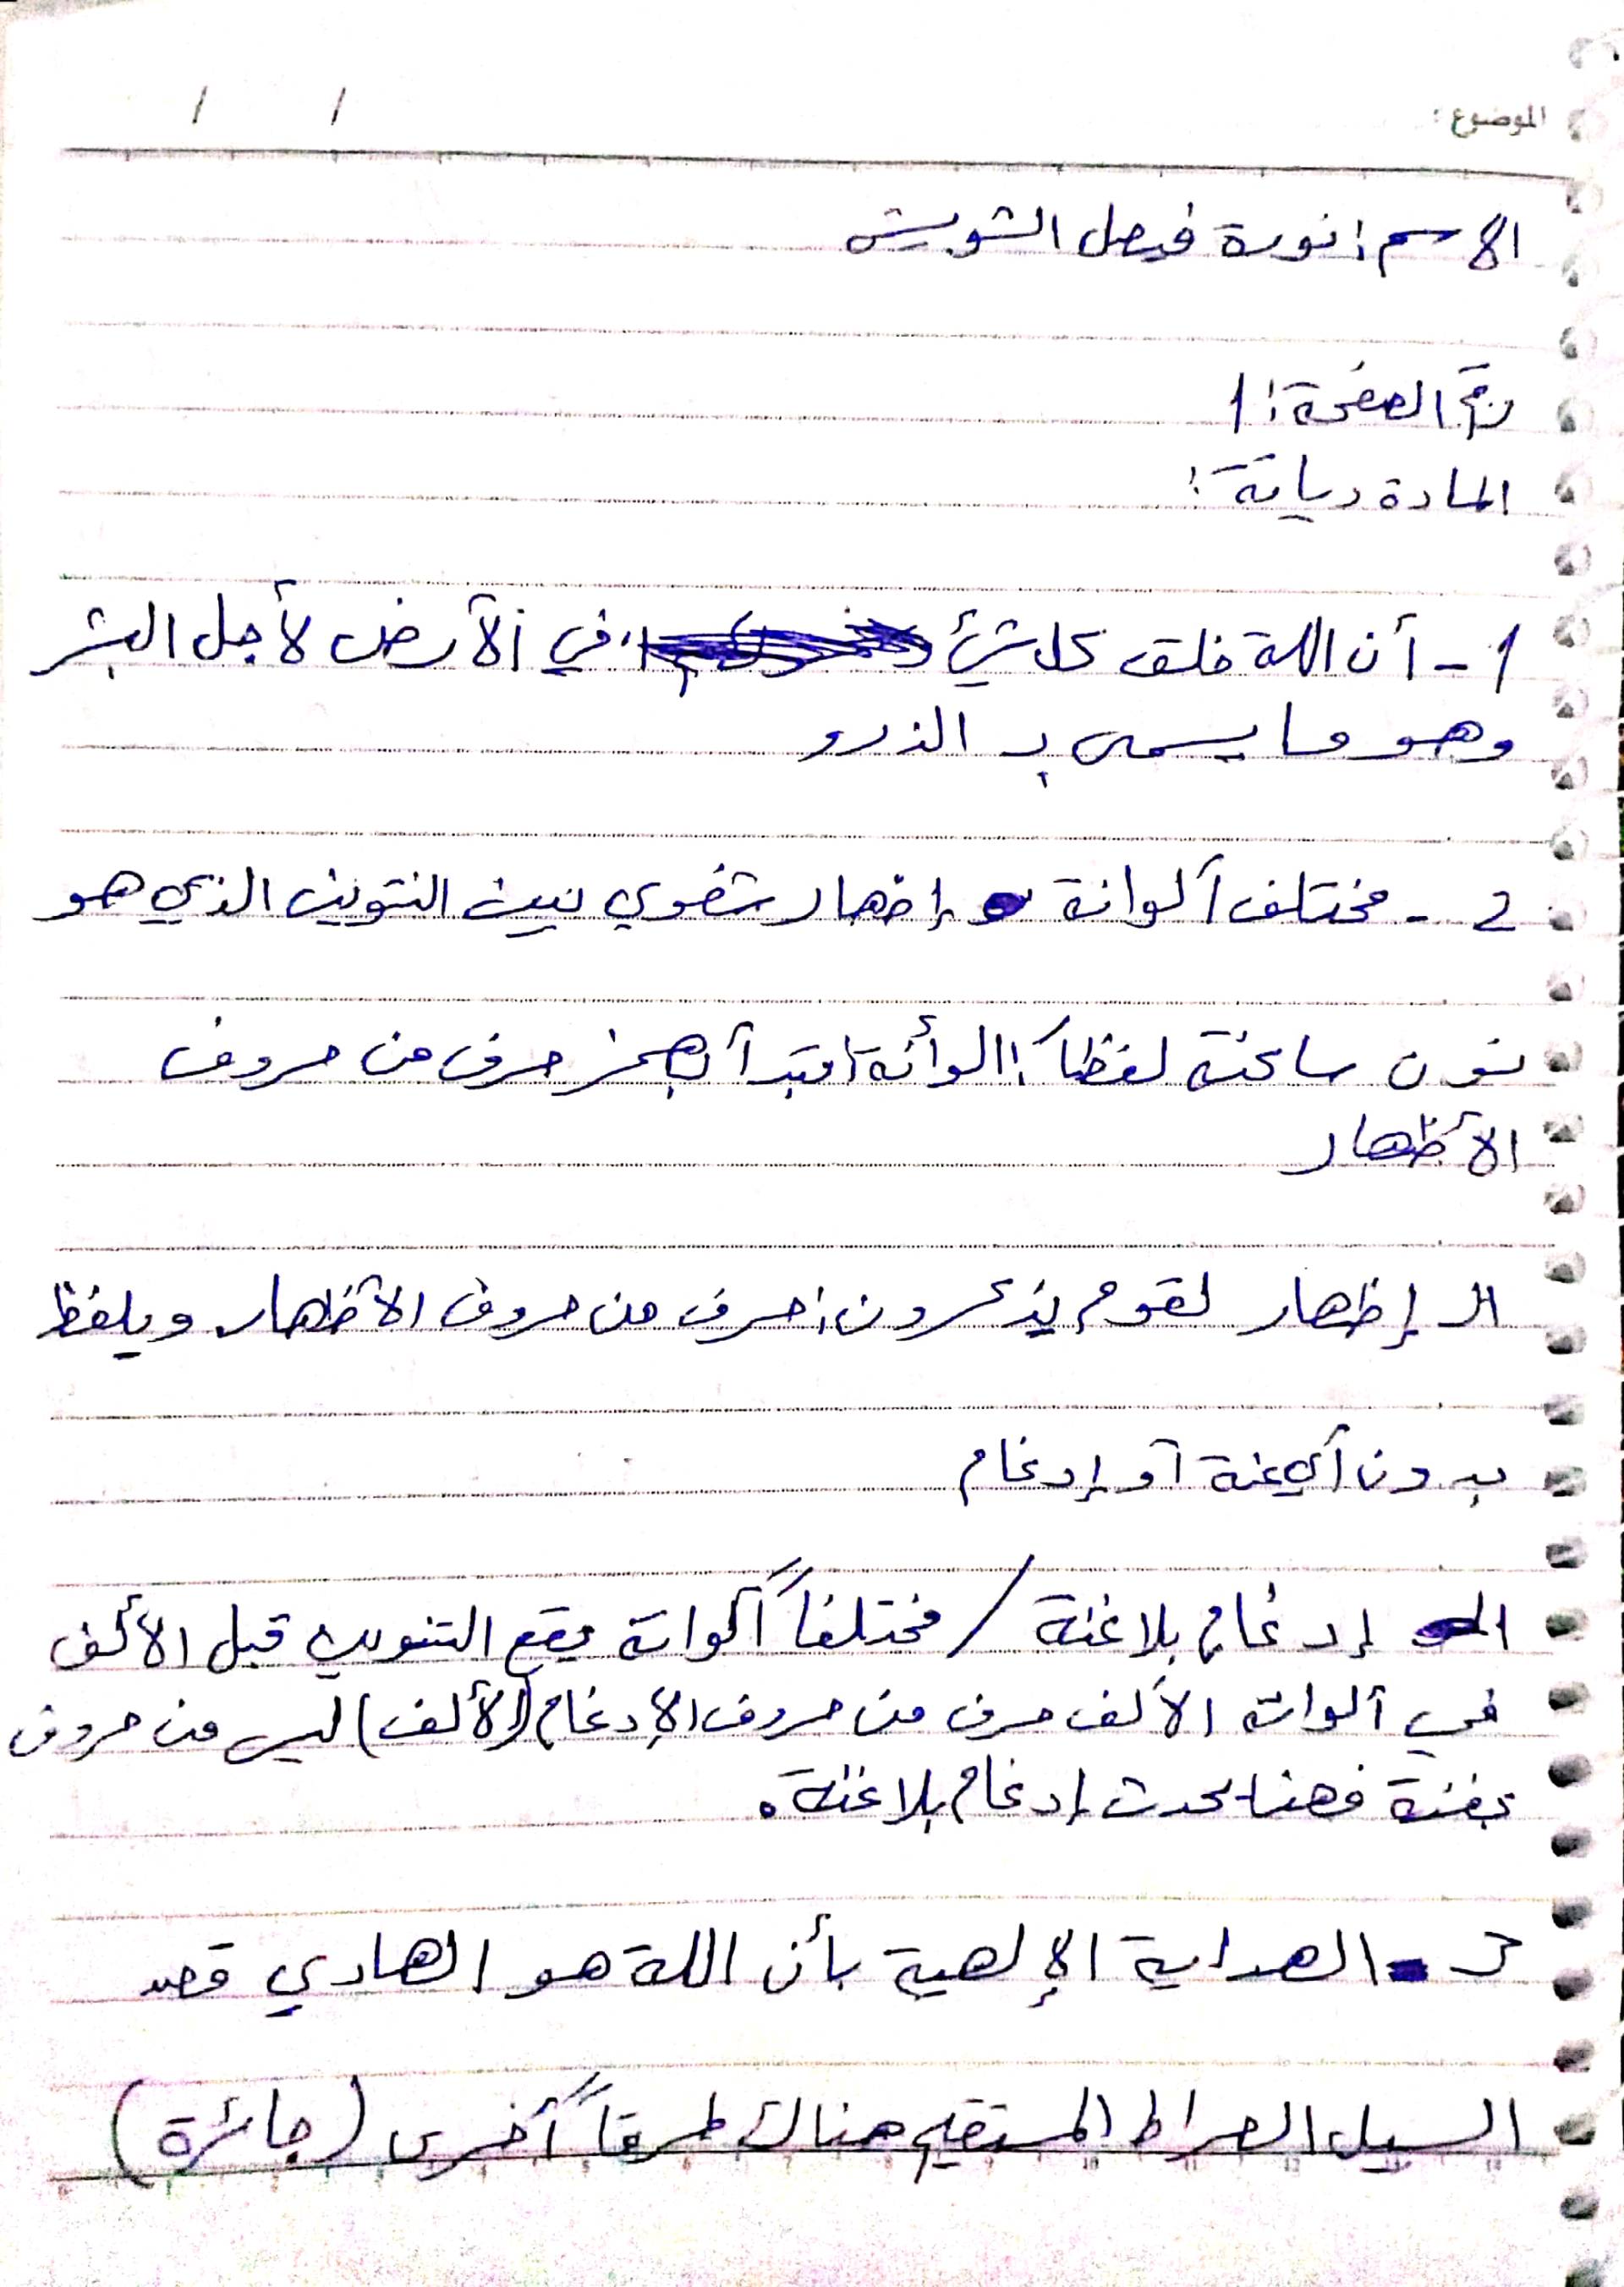 الموضوع :
/ /
الاسم : نورة فيصل الشويش
رقم الصفحة : 1
المادة ديانة :
1 - أن اللة خلق كل شئ في الأرض لأجل البشر
وهو ما يسمى بـ الذرو
2 - مختلف ألوانة إضهار شفوي نبين التنوين الذي هو
نون ساكنة لفظاً : الوأنة ابتدأ بهمز حرف من حروف
الأظهار
الـ إظهار لقوم يذكرون : حرف من حروف الأظهار ويلفظ
بدون أي غنة أو إدغام
إدغام بلا غنة / مختلفاً ألوانة يقع التنوين قبل الألف
في ألوانة الألف حرف من حروف الإدغام (الألف) ليس من حروف
بغنة فهنا يحدث إدغام بلا غنة .
3 - الهداية الإلهية بأن اللة هو الهادي قصد
السبيل الصراط المستقيم هناك طرقاً أخرى (جائرة)